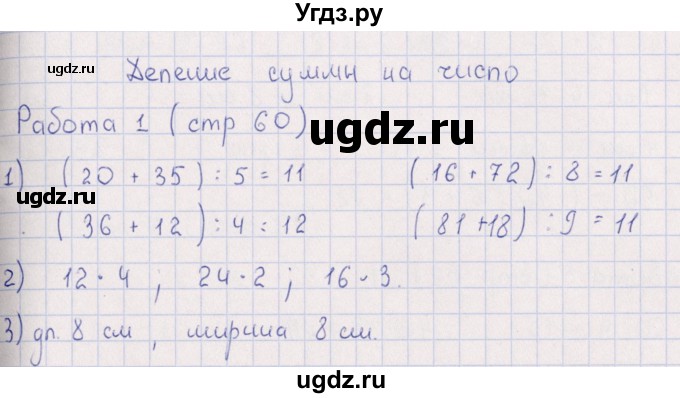 Угдз.ру
ugdz.ru ugdz.ru
Деление суммы на число
Работа 1 (стр 60)
ugdz.ru
1) (20 + 35) : 5 = 11 (16 + 72) : 8 = 11
ugdz.ru
(36 + 12) : 4 = 12 (81 + 18) : 9 = 11
2) 12 · 4 ; 24 · 2 ; 16 · 3.
3) дл. 8 см , ширина 8 см.
ugdz.ru